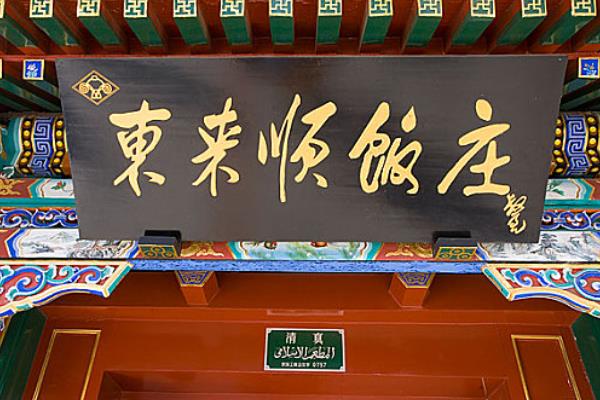 東来順飯庄
清真
المطعم الإسلامي
0757